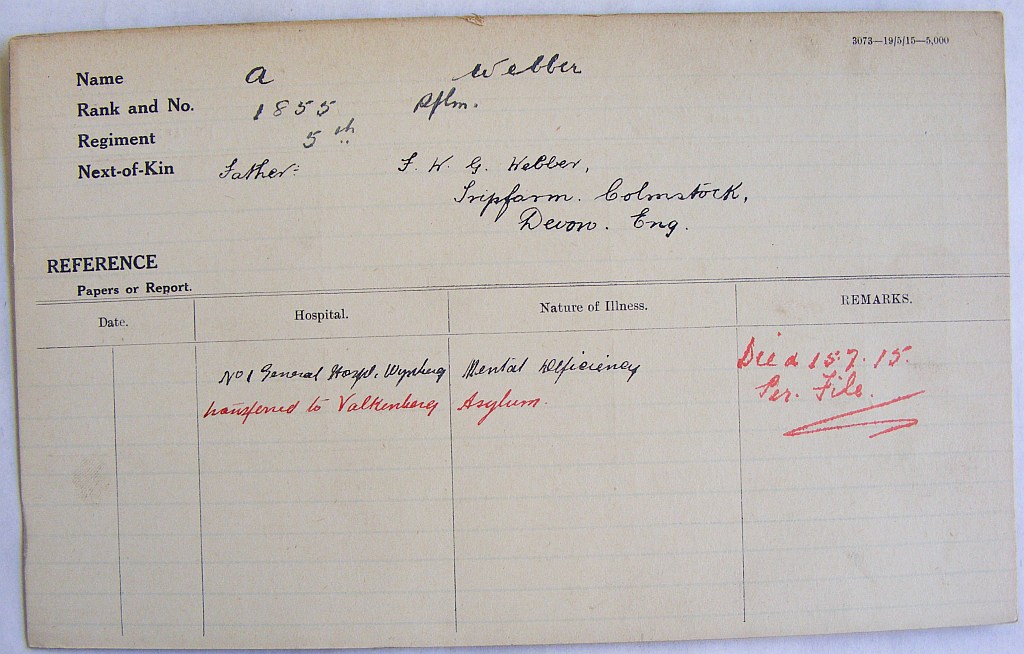 3073—19/5/15—5,000
Name A Webber
Rank and No. 1855 Rflm.
Regiment 5th
Next-of-Kin Father: F. W. G. Webber,
Culmstock,
Devon. Eng.
REFERENCE
Papers or Report.
Date. Hospital. Nature of Illness. REMARKS.
No 1 General Hospl. Wynberg Mental Deficiency Died 15.7.15.
transferred to Valkenberg Asylum. Per. File.